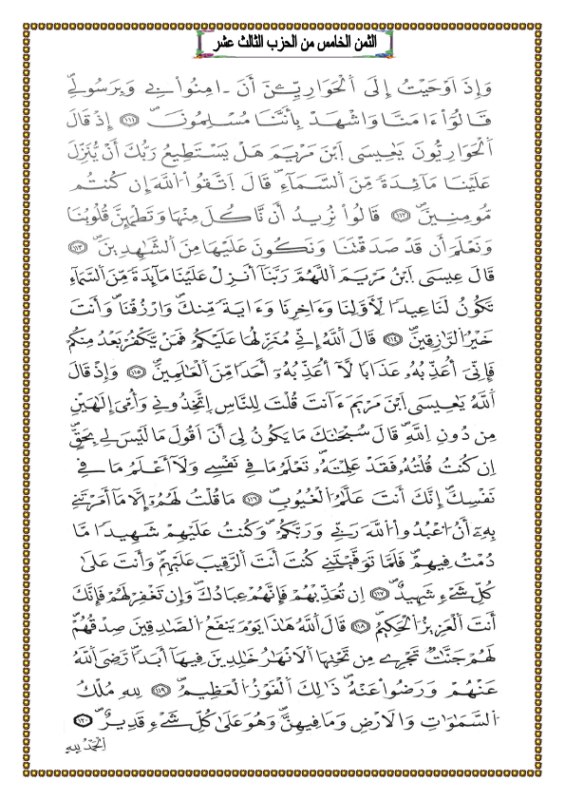 الثمن الخامس من الحزب الثالث عشر
وَإِذَ اَوْحَيْتُ إِلَى اَلْحَوَارِيِّـۧنَ أَنَ ـ اٰمِنُواْ بِے وَبِرَسُولِےۖ
قَالُوٓاْ ءَامَنَّا وَاشْهَدْ بِأَنَّنَا مُسْلِمُونَۖ ١١١ إِذْ قَالَ
اَلْحَوَارِيُّونَ يَٰعِيسَى اَبْنَ مَرْيَمَ هَلْ يَسْتَطِيعُ رَبُّكَ أَنْ يُّنَزِّلَ
عَلَيْنَا مَآئِدَةٗ مِّنَ اَلسَّمَآءِۖ قَالَ اَتَّقُواْ اللَّهَ إِن كُنتُم
مُّومِنِينَۖ ١١٢ قَالُواْ نُرِيدُ أَن نَّاكُلَ مِنْهَا وَتَطْمَئِنَّ قُلُوبُنَا
وَنَعْلَمَ أَن قَدْ صَدَقْتَنَا وَنَكُونَ عَلَيْهَا مِنَ اَلشَّٰهِدِينَۖ ١١٣
قَالَ عِيسَى اَبْنُ مَرْيَمَ اَللَّهُمَّ رَبَّنَآ أَنزِلْ عَلَيْنَا مَآئِدَةٗ مِّنَ اَلسَّمَآءِ
تَكُونُ لَنَا عِيداٗ لِّأَوَّلِنَا وَءَاخِرِنَا وَءَايَةٗ مِّنكَۖ وَارْزُقْنَاۖ وَأَنتَ
خَيْرُ اُلرَّٰزِقِينَۖ ١١٤ قَالَ اَللَّهُ إِنِّے مُنَزِّلُهَا عَلَيْكُمْۖ فَمَنْ يَّكْفُرْ بَعْدُ مِنكُمْ
فَإِنِّيَ أُعَذِّبُهُۥ عَذَاباٗ لَّآ أُعَذِّبُهُۥٓ أَحَداٗ مِّنَ اَلْعَٰلَمِينَۖ ١١٥ وَإِذْ قَالَ
اَللَّهُ يَٰعِيسَى اَبْنَ مَرْيَمَ ءَآنتَ قُلْتَ لِلنَّاسِ اِتَّخِذُونِے وَأُمِّيَ إِلَٰهَيْنِ
مِن دُونِ اِللَّهِۖ قَالَ سُبْحَٰنَكَ مَا يَكُونُ لِيَ أَنَ اَقُولَ مَا لَيْسَ لِے بِحَقٍّۖ
اِن كُنتُ قُلْتُهُۥ فَقَدْ عَلِمْتَهُۥۖ تَعْلَمُ مَا فِے نَفْسِے وَلَآ أَعْلَمُ مَا فِے
نَفْسِكَۖ إِنَّكَ أَنتَ عَلَّٰمُ اُلْغُيُوبِۖ ١١٦ مَا قُلْتُ لَهُمُۥٓ إِلَّا مَآ أَمَرْتَنِے
بِهِۦٓ أَنُ اُعْبُدُواْ اُللَّهَ رَبِّے وَرَبَّكُمْۖ وَكُنتُ عَلَيْهِمْ شَهِيداٗ مَّا
دُمْتُ فِيهِمْۖ فَلَمَّا تَوَفَّيْتَنِے كُنتَ أَنتَ اَلرَّقِيبَ عَلَيْهِمْۖ وَأَنتَ عَلَىٰ
كُلِّ شَےْءٖ شَهِيدٌۖ ١١٧ اِن تُعَذِّبْهُمْ فَإِنَّهُمْ عِبَادُكَۖ وَإِن تَغْفِرْ لَهُمْ فَإِنَّكَ
أَنتَ اَلْعَزِيزُ اُلْحَكِيمُۖ ١١٨ قَالَ اَللَّهُ هَٰذَا يَوْمَ يَنفَعُ اُلصَّٰدِقِينَ صِدْقُهُمْۖ
لَهُمْ جَنَّٰتٞ تَجْرِے مِن تَحْتِهَا اَلَانْهَٰرُ خَٰلِدِينَ فِيهَآ أَبَداٗۖ رَّضِيَ اَللَّهُ
عَنْهُمْ وَرَضُواْ عَنْهُۖ ذَٰلِكَ اَلْفَوْزُ اُلْعَظِيمُۖ ١١٩ لِلهِ مُلْكُ
اُلسَّمَٰوَٰتِ وَالَارْضِ وَمَا فِيهِنَّۖ وَهُوَ عَلَىٰ كُلِّ شَےْءٖ قَدِيرٌۖ ١٢٠
اَلْحَمْدُ لِلهِ